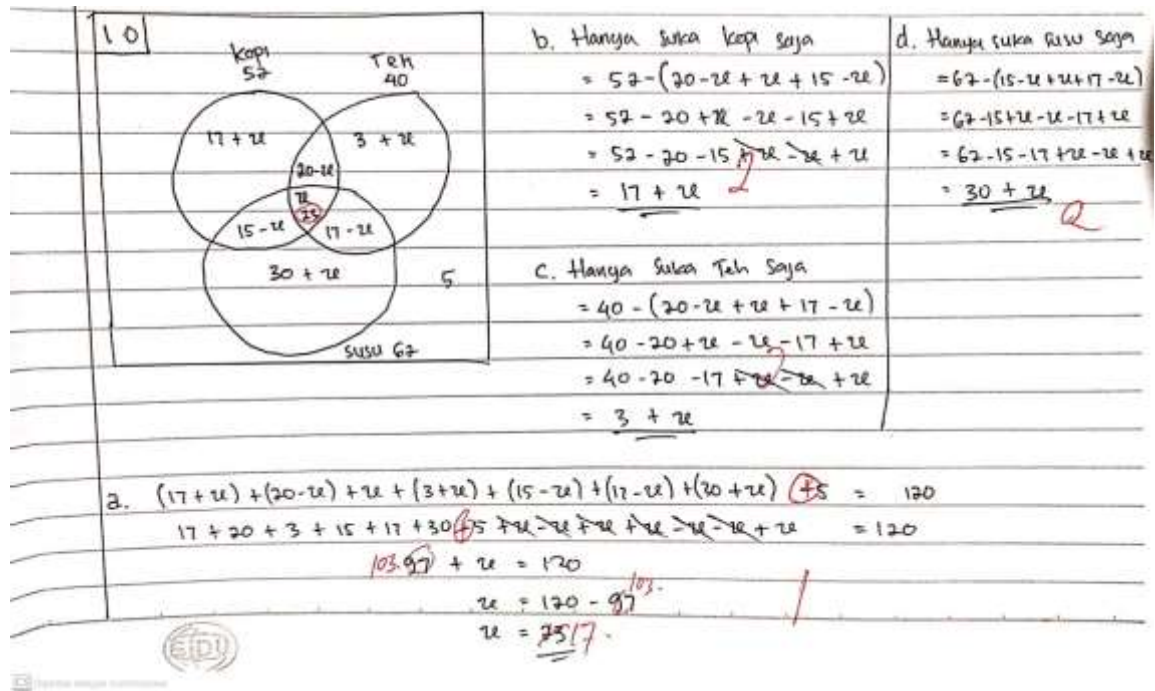 10
Kopi
52
Teh
40
17 + x
3 + x
20-x
x
23
15-x
17-x
30 + x
5
susu 62
b. Hanya suka kopi saja
= 52-(20-x + x + 15 -x)
= 52 - 20 + x - x - 15 + x
= 52 - 20 - 15 + x - x + x
= 17 + x
2
c. Hanya Suka Teh Saja
= 40 - (20-x + x + 17 - x)
= 40 -20 + x - x -17 + x
= 40 -20 -17 + x - x + x
= 3 + x
2
d. Hanya suka susu saja
= 62-(15-x+x+17-x)
= 62-15+x-x-17+x
= 62-15-17+x-x+x
= 30 + x
2
a. (17+x) + (20-x) + x + (3+x) + (15-x) + (17-x) + (30 + x) +5 = 120
17 + 20 + 3 + 15 + 17 + 30 + 5 + x - x + x + x - x - x + x = 120
103. 97 + x = 120
x = 120 - 97 103.
x = 23 17.
1